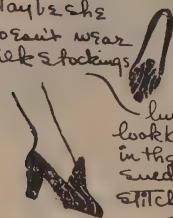 maybe she
doesn't wear
silk stockings
look
in the
sued
stitch